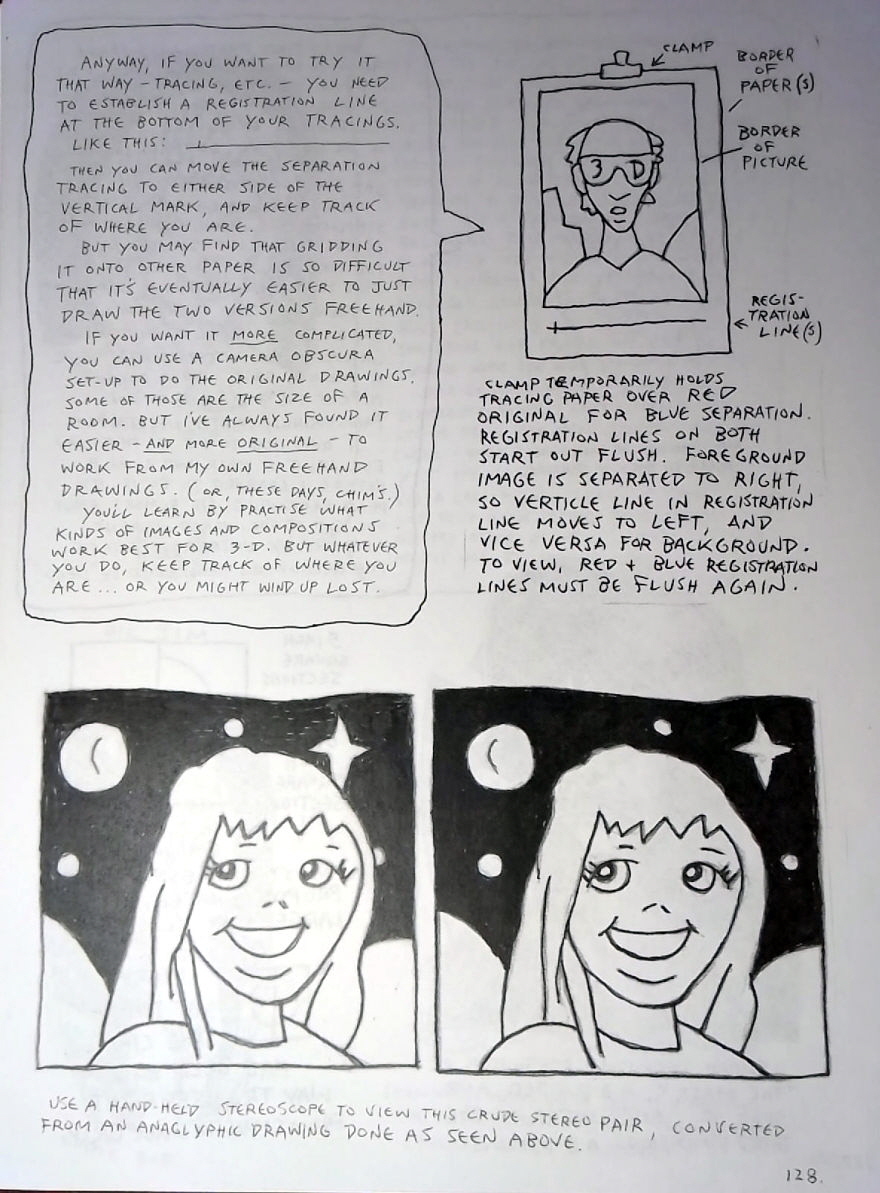 ANYWAY, IF YOU WANT TO TRY IT
THAT WAY - TRACING, ETC. - YOU NEED
TO ESTABLISH A REGISTRATION LINE
AT THE BOTTOM OF YOUR TRACINGS.
LIKE THIS:
THEN YOU CAN MOVE THE SEPARATION
TRACING TO EITHER SIDE OF THE
VERTICAL MARK, AND KEEP TRACK
OF WHERE YOU ARE.
BUT YOU MAY FIND THAT GRIDDING
IT ONTO OTHER PAPER IS SO DIFFICULT
THAT IT'S EVENTUALLY EASIER TO JUST
DRAW THE TWO VERSIONS FREEHAND.
IF YOU WANT IT MORE COMPLICATED,
YOU CAN USE A CAMERA OBSCURA
SET-UP TO DO THE ORIGINAL DRAWINGS.
SOME OF THOSE ARE THE SIZE OF A
ROOM. BUT I'VE ALWAYS FOUND IT
EASIER - AND MORE ORIGINAL - TO
WORK FROM MY OWN FREEHAND
DRAWINGS. (OR, THESE DAYS, CHIM'S.)
YOU'LL LEARN BY PRACTISE WHAT
KINDS OF IMAGES AND COMPOSITIONS
WORK BEST FOR 3-D. BUT WHATEVER
YOU DO, KEEP TRACK OF WHERE YOU
ARE... OR YOU MIGHT WIND UP LOST.
CLAMP
BORDER
OF
PAPER(S)
BORDER
OF
PICTURE
3 D
REGIS-
TRATION
LINE(S)
CLAMP TEMPORARILY HOLDS
TRACING PAPER OVER RED
ORIGINAL FOR BLUE SEPARATION.
REGISTRATION LINES ON BOTH
START OUT FLUSH. FOREGROUND
IMAGE IS SEPARATED TO RIGHT,
SO VERTICLE LINE IN REGISTRATION
LINE MOVES TO LEFT, AND
VICE VERSA FOR BACKGROUND.
TO VIEW, RED + BLUE REGISTRATION
LINES MUST BE FLUSH AGAIN.
USE A HAND-HELD STEREOSCOPE TO VIEW THIS CRUDE STEREO PAIR, CONVERTED
FROM AN ANAGLYPHIC DRAWING DONE AS SEEN ABOVE.
128.